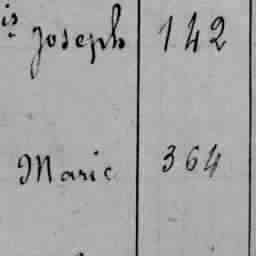 is Joseph 142
Marie 364